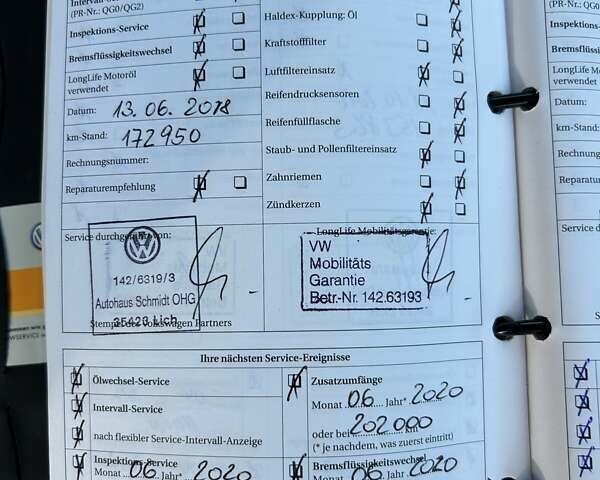 Intervall-Service
(PR-Nr.: QG0/QG2)
Inspektions-Service
Bremsflüssigkeitswechsel
LongLife Motoröl
verwendet
Datum: 13.06.2018
km-Stand: 172950
Rechnungsnummer:
Reparaturempfehlung
Haldex-Kupplung: Öl
Kraftstofffilter
Luftfiltereinsatz
Reifendrucksensoren
Reifenfüllflasche
Staub- und Pollenfiltereinsatz
Zahnriemen
Zündkerzen
Service durchgeführt von:
142/6319/3
Autohaus Schmidt OHG
35423 Lich
Stempel des Volkswagen Partners
LongLife Mobilitätsgarantie:
VW
Mobilitäts
Garantie
Betr.-Nr. 142.63193
Ihre nächsten Service-Ereignisse
Ölwechsel-Service
Intervall-Service
nach flexibler Service-Intervall-Anzeige
Inspektions-Service
Monat 06 Jahr* 2020
Zusatzumfänge
Monat 06 Jahr* 2020
oder bei 202000 km
(* je nachdem, was zuerst eintritt)
Bremsflüssigkeitswechsel
Monat 06 Jahr* 2020
(PR-Nr.: QG0
Inspektions-
Bremsflüssig
LongLife Mo
verwendet
Datum:
km-Stand:
Rechnung
Reparatur
Service du